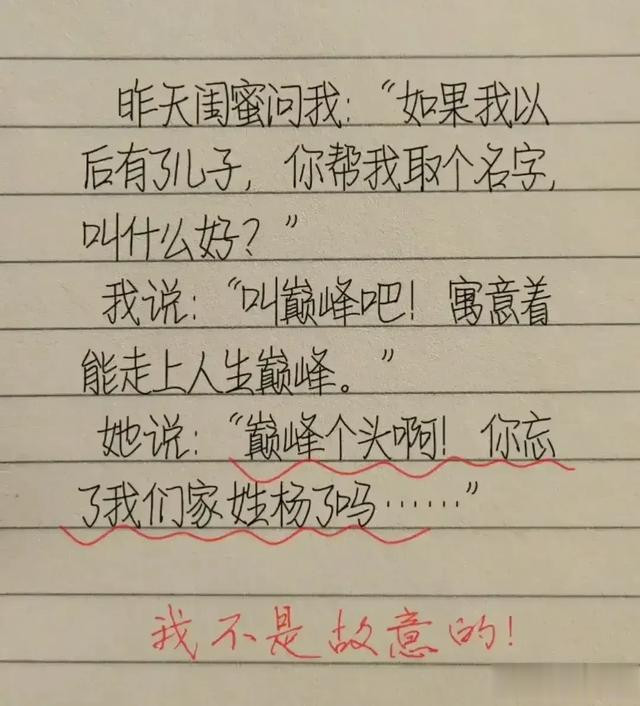 昨天闺蜜问我：“如果我以
后有了儿子，你帮我取个名字，
叫什么好？”
我说：“叫巅峰吧！寓意着
能走上人生巅峰。”
她说：“巅峰个头啊！你忘
了我们家姓杨了吗……”
我不是故意的！